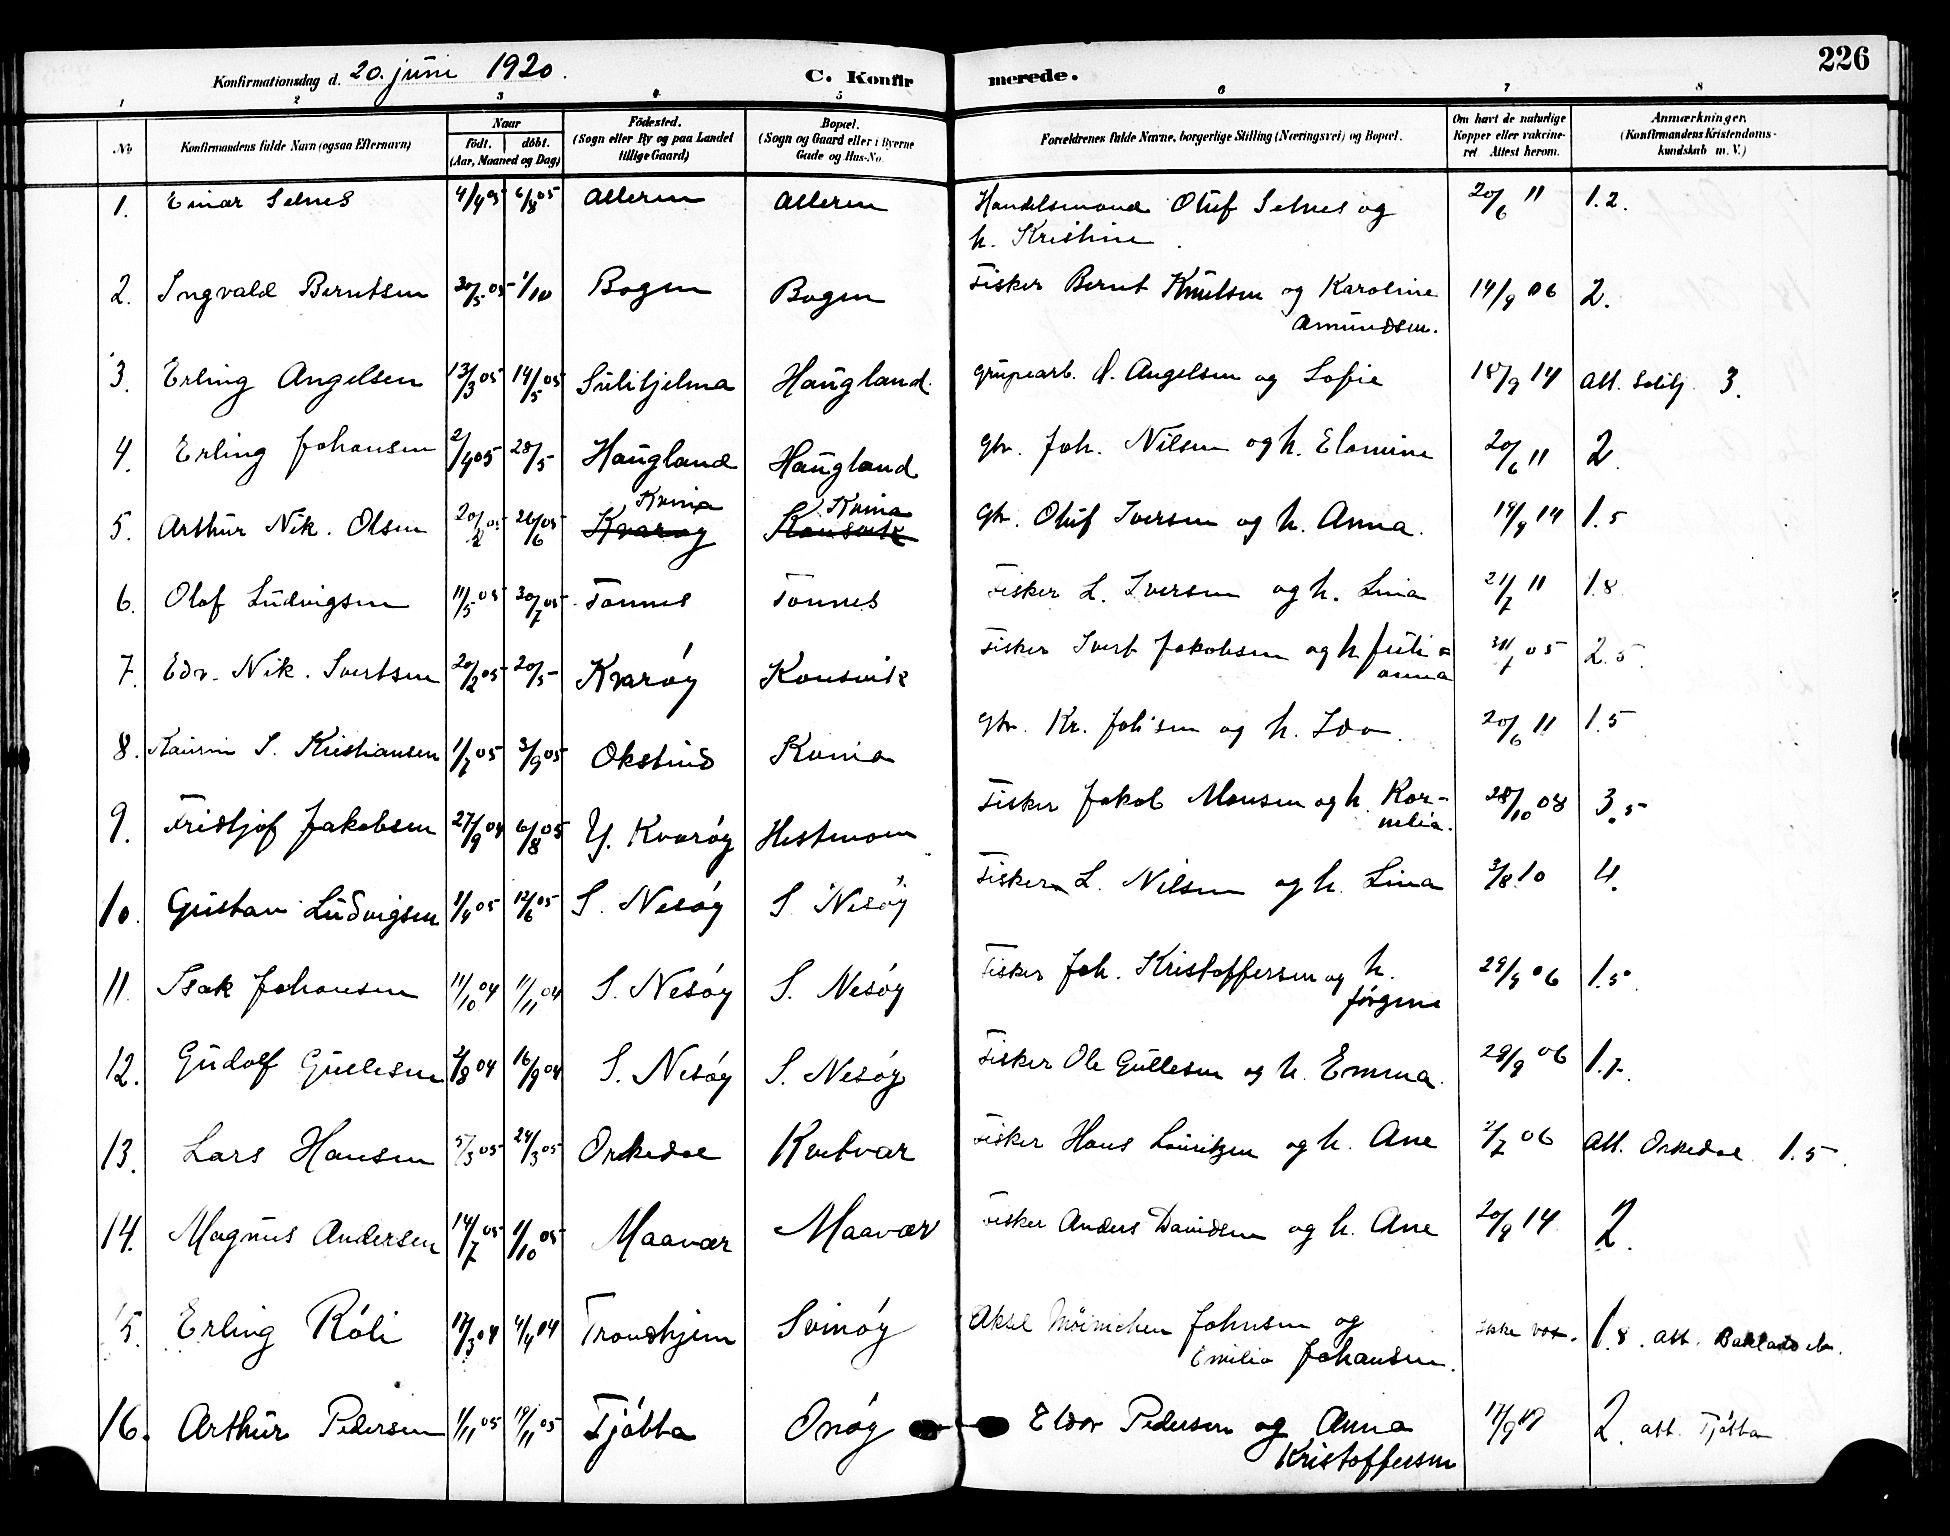 226
Konfirmationsdag d. 20. juni 1920. C. Konfirmerede.
1 2 3 4 5 6 7 8
No Konfirmandens fulde Navn (ogsaa Efternavn) Naar født. døbt. (Aar, Maaned og Dag) Fødested. (Sogn eller By og paa Landet tillige Gaard) Bopæl. (Sogn og Gaard eller i Byerne Gade og Hus-No. Forældrenes fulde Navne, borgerlige Stilling (Næringsvei) og Bopæl. Om havt de naturlige Kopper eller vakcineret Attest herom. Anmærkninger. (Konfirmandens Kristendomskundskab m. V.)
1. Einar Selnes 4/4 05 6/8 05 Alteren Alteren Handelsmand Oluf Selnes og 20/6 11 1.2.
h. Kristine.
2. Ingvald Berntsen 30/5 05 1/10 Bogen Bogen Fisker Bernt Knutsen og Karoline 14/9 06 2.
Amundsen.
3. Erling Angelsen 13/3 05 14/5 05 Sulitjelma Haugland. Grupearb. A. Angelsen og Sofie 18/9 14 Att. Sulitj. 3.
4. Erling Johansen 2/4 05 28/5 Haugland Haugland Gbr. Joh. Nilsen og h. Elomine 20/6 11 2.
Kvina Kvina
5. Arthur Nik. Olsen 20/2 05 26/6 05 Kvarøy Konsvik Gbr. Oluf Iversen og h. Anna. 19/9 14 1.5
6. Olaf Ludvigsen 11/5 05 30/7 05 Tonnes Tonnes Fisker L. Iversen og h. Lina 21/7 11 1.8
7. Edv. Nik. Ivertsen 20/2 05 20/5 Kvarøy Konsvik Fisker Ivert Jakobsen og h. Juli= 31/7 05 2.5.
anna
8. S. Kristiansen 1/7 05 3/9 05 Okstind Kvina Gbr. Kr. Joh'sen og h. Ida. 20/6 11 1.5
9. Fridtjof Jakobsen 27/9 04 6/8 05 Y. Kvarøy Hestmon Fisker Jakob Monsen og h. Kor- 28/10 08 3.5
nelia.
10. Gustav Ludvigsen 1/4 05 12/6 05 S. Nesøy S. Nesøy Fisker L. Nilsen og h. Lina 3/8 10 4.
11. Isak Johansen 11/10 04 11/11 04 S. Nesøy S. Nesøy Fisker Joh. Kristoffersen og h. 29/9 06 1.5.
Jørgine
12. Gudolf Gullesen 2/8 04 16/9 04 S. Nesøy S. Nesøy Fisker Ole Gullesen og h. Emma. 29/9 06 1.7.
13. Lars Hansen 5/3 05 24/3 05 Orkedal Kvitvær Fisker Hans Lauritzen og h. Ane 2/7 06 Att. Orkedal 1.5.
14. Magnus Andersen 14/7 05 1/10 05 Maavær Maavær Fisker Anders Davidsen og h. Ane 20/9 14 2.
15. Erling Róli 17/3 04 4/4 04 Trondhjem Svinøy Aksel Møinichen Johnsen og Ikke vac. 1.8. att. Baklandet.
Emilia Johansen.
16. Arthur Pedersen 1/11 05 19/11 05 Tjøtta Onøy Eldor Pedersen og Anna 17/9 19 2. att. Tjøtta
Kristoffersen